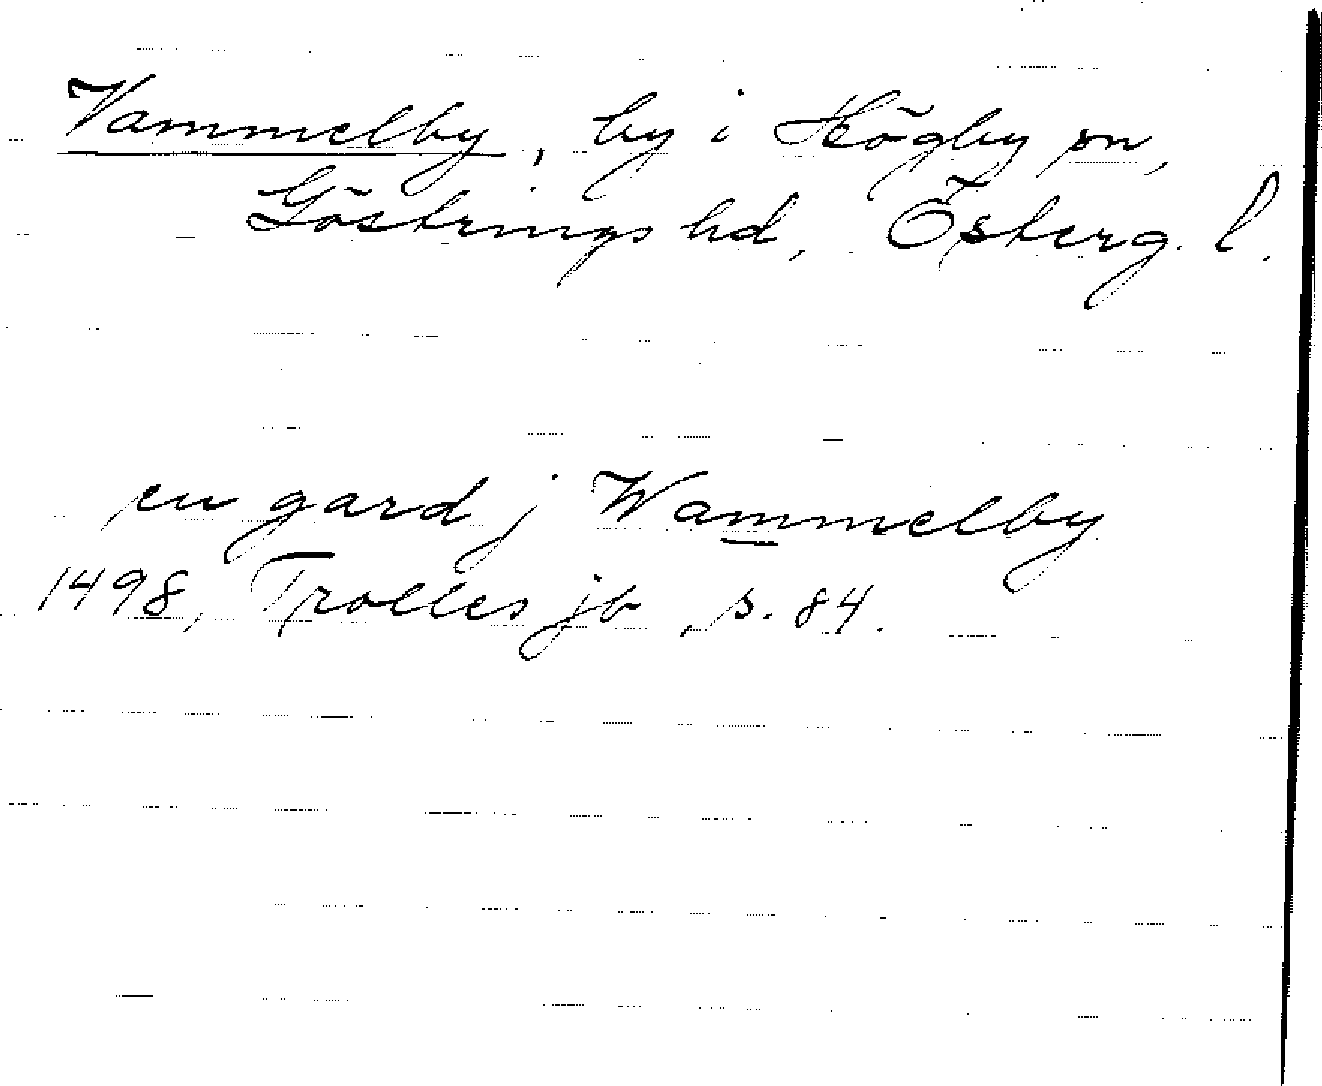 Vammelby, by i Högby sn,
Göstrings hd, Österg. l.
en gard j Wammelby
1498, Trolles jb, s. 84.